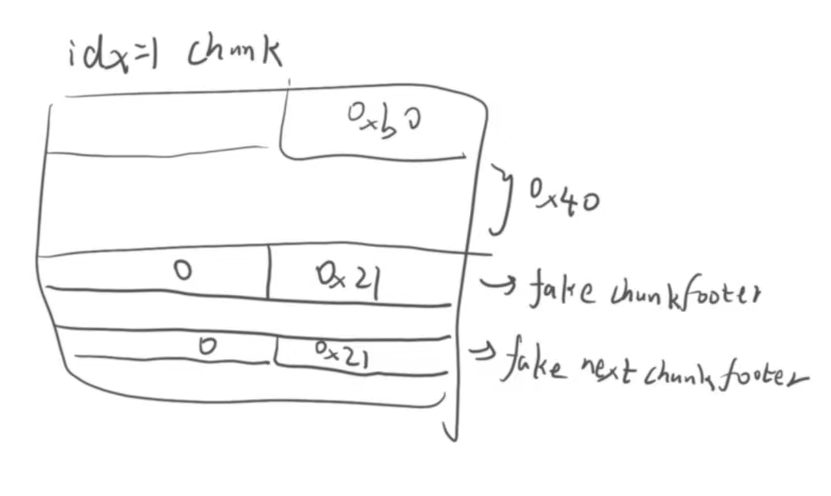 idx=1 chunk
0xb0
0x40
0 0x21 → fake chunkfooter
0 0x21 → fake next chunkfooter